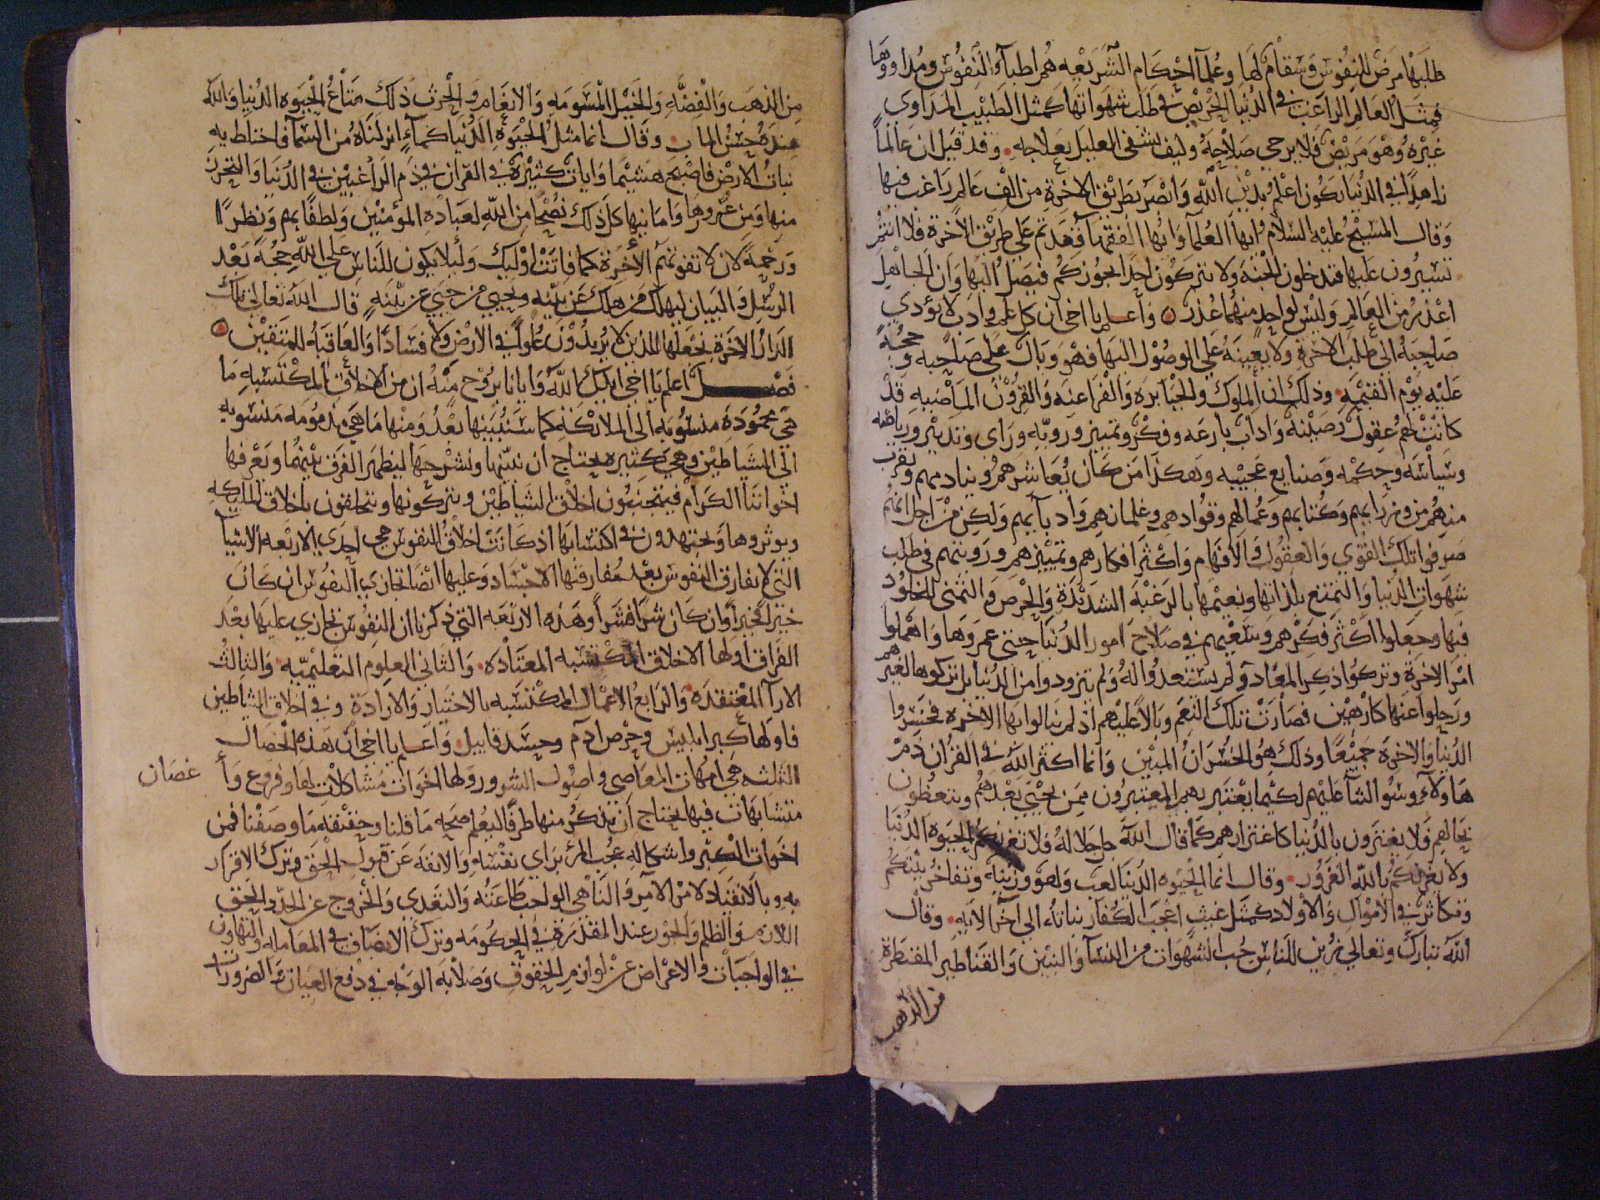 طلبها مرض النفوس وسقام لها وعلما احكام الشريعه هم اطباء النفوس ومداووها
فمثل العالم الراغب في الدنيا الحريص في طلب شهواتها كمثل الطبيب المداوي
غيره وهو مريض فلا يرجى صلاحه وكيف يشفي العليل بعلاجه وقد قيل ان عالما
زاهدا في الدنيا يكون اعلم بدين الله وابصر بطريق الاخرة من الف عالم راغب فيها
وقال المسيح عليه السلام ايها العلما وايها الفقهآ قعدتم على طريق الاخرة فلا انتم
تسيرون عليها فتدخلون الجنة ولا تتركون احدا يجوزكم فيصل اليها وان الجاهل
اعذر من العالم وليس لواحد منهما عذر واعلم يا اخي ان كل علم وادب لا يؤدي
صاحبه الى طلب الاخرة ولا يعينه على الوصول اليها فهو وبال على صاحبه وحجة
عليه يوم القيمه وذلك ان الملوك والجبابره والفراعنه والقرون الماضيه قد
كانت لهم عقول رصينة واداب بارعه وفكر وتمييز ورويه وراى وتدبير ورياضه
وسياسه وحكمه وصنايع عجيبه وهكذا من كان يعاشرهم وينادمهم ويقرب
منهم من وزرايهم وكتابهم وعمالهم وقوادهم وغلمانهم وادبآيهم ولكن من اجل انهم
صرفوا تلك القوي والعقول والافهام واكثر افكارهم وتمييزهم ورويتهم في طلب
شهوات الدنيا والتمتع بلذاتها ونعيمها بالرغبة الشديدة والحرص والتمني للخلود
فيها وجعلوا اكثر فكرهم وسعيهم في صلاح امور الدنيا حتى عمروها واهملوا
امر الاخرة وتركوا ذكر المعاد ولم يستعدوا له ولم يتزودوا من الدنيا بل تركوها لغيرهم
ورحلوا عنها كارهين فصارت تلك النعم وبالا عليهم اذ لم ينالوا بها الاخرة فخسروا
الدنيا والاخرة جميعا وذلك هو الخسران المبين وانما اكثر الله في القران ذم
هاولاء وسوء الثنا عليهم لكيما يعتبر بهم المعتبرون ممن يجيئ بعدهم ويتعظون
بحالهم فلا يغترون بالدنيا كاغترارهم كما قال الله جل جلاله فلا تغرنكم الحيوة الدنيا
ولا يغرنكم بالله الغرور وقال انما الحيوه الدنيا لعب ولهو وزينة وتفاخر بينكم
وتكاثر في الاموال والاولاد كمثل غيث اعجب الكفار نباته الى اخر الايه وقال
الله تبارك وتعالى زين للناس حب الشهوات من النسآ والبنين والقناطير المقنطرة
من الذهب
من الذهب والفضة والخيل المسومه والانعام والحرث ذلك متاع الحيوه الدنيا والله
عنده حسن الماب وقال انما مثل الحيوة الدنيا كماء انزلناه من السما فاختلط به
نبات الارض فاصبح هشيما وايات كثيرة في القران في ذم الراغبين في الدنيا والتحرز
منها ومن غرورها وامانيها كل ذلك نصحا من الله لعباده المؤمنين ولطفا بهم ونظرا
ورحمة لان لا تفوتهم الاخرة كما فاتت اوليك وليلا يكون للناس على الله حجة بعد
الرسل والبيان ليهلك من هلك عن بينه ويحيى من حيي عن بينة قال الله تعالى تلك
الدار الاخرة نجعلها للذين لا يريدون علوا في الارض ولا فسادا والعاقبة للمتقين
فصل اعلم يا اخي ايدك الله وايانا بروح منه ان من الاخلاق المكتسبه ما
هي محمودة منسوبه الى الملائكة كما سنبينها بعد ومنها ما هي مذمومه منسوبه
الى الشياطين وهي كثيره يحتاج ان نبينها ونشرحها ليظهر الفرق بينهما ويعرفها
اخواننا الكرام فيتجنبون اخلاق الشياطين ويتركونها ويتخلقون باخلاق الملايكه
ويوثروها ويجتهدون في اكتسابها اذ كانت اخلاق النفوس هي احدي الاربعه الاشيآ
التي لا تفارق النفوس بعد مفارقتها الاجساد وعليها ايضا تجازي النفوس ان كان
خيرا فخيرا وان كان شرا فشرا وهذه الاربعه التي ذكرنا ان النفوس تجازي عليها بعد
الفراق اولها الاخلاق المكتسبه المعتاده والثاني العلوم التعليميه والثالث
الارآ المعتقده والرابع الاعمال المكتسبه بالاختيار والارادة وفي اخلاق الشياطين
فاولها كبر ابليس وحرص ادم وحسد قابيل واعلم يا اخي ان هذه الخصال
الثلثه هي امهات المعاصي واصول الشرور ولها اخوات مشاكلات لها وفروع وأ
غصان
متشابهات فيها يحتاج ان نذكر منها طرفا ليعلم صحه ما قلنا وحقيقه ما وصفنا فمن
اخوات الكبر واشكاله عجب المرء براي نفسه والانفه عن قبول الحق وترك الاقرار
به وبالانقياد لامر الامر والناهي الواجب طاعته والتعدي والخروج عن الحد والحق
اللازم والظلم والجور عند المقدرة في الحكومه وترك الانصاف في المعامله والتهاون
في الواجبات والاعراض عن لوازم الحقوق وصلابه الوجه في دفع العيان والضرورات